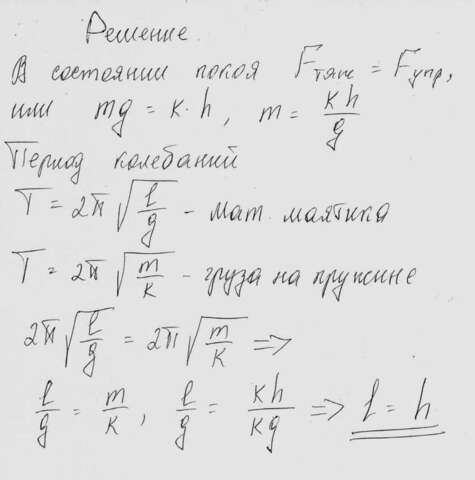 Решение.
В состоянии покоя Fтяж = Fупр,
или mg = k·h, m = kh/g
Период колебаний
T = 2π√(l/g) - мат. маятника
T = 2π√(m/k) - груза на пружине
2π√(l/g) = 2π√(m/k) =>
l/g = m/k, l/g = kh/kg => l = h